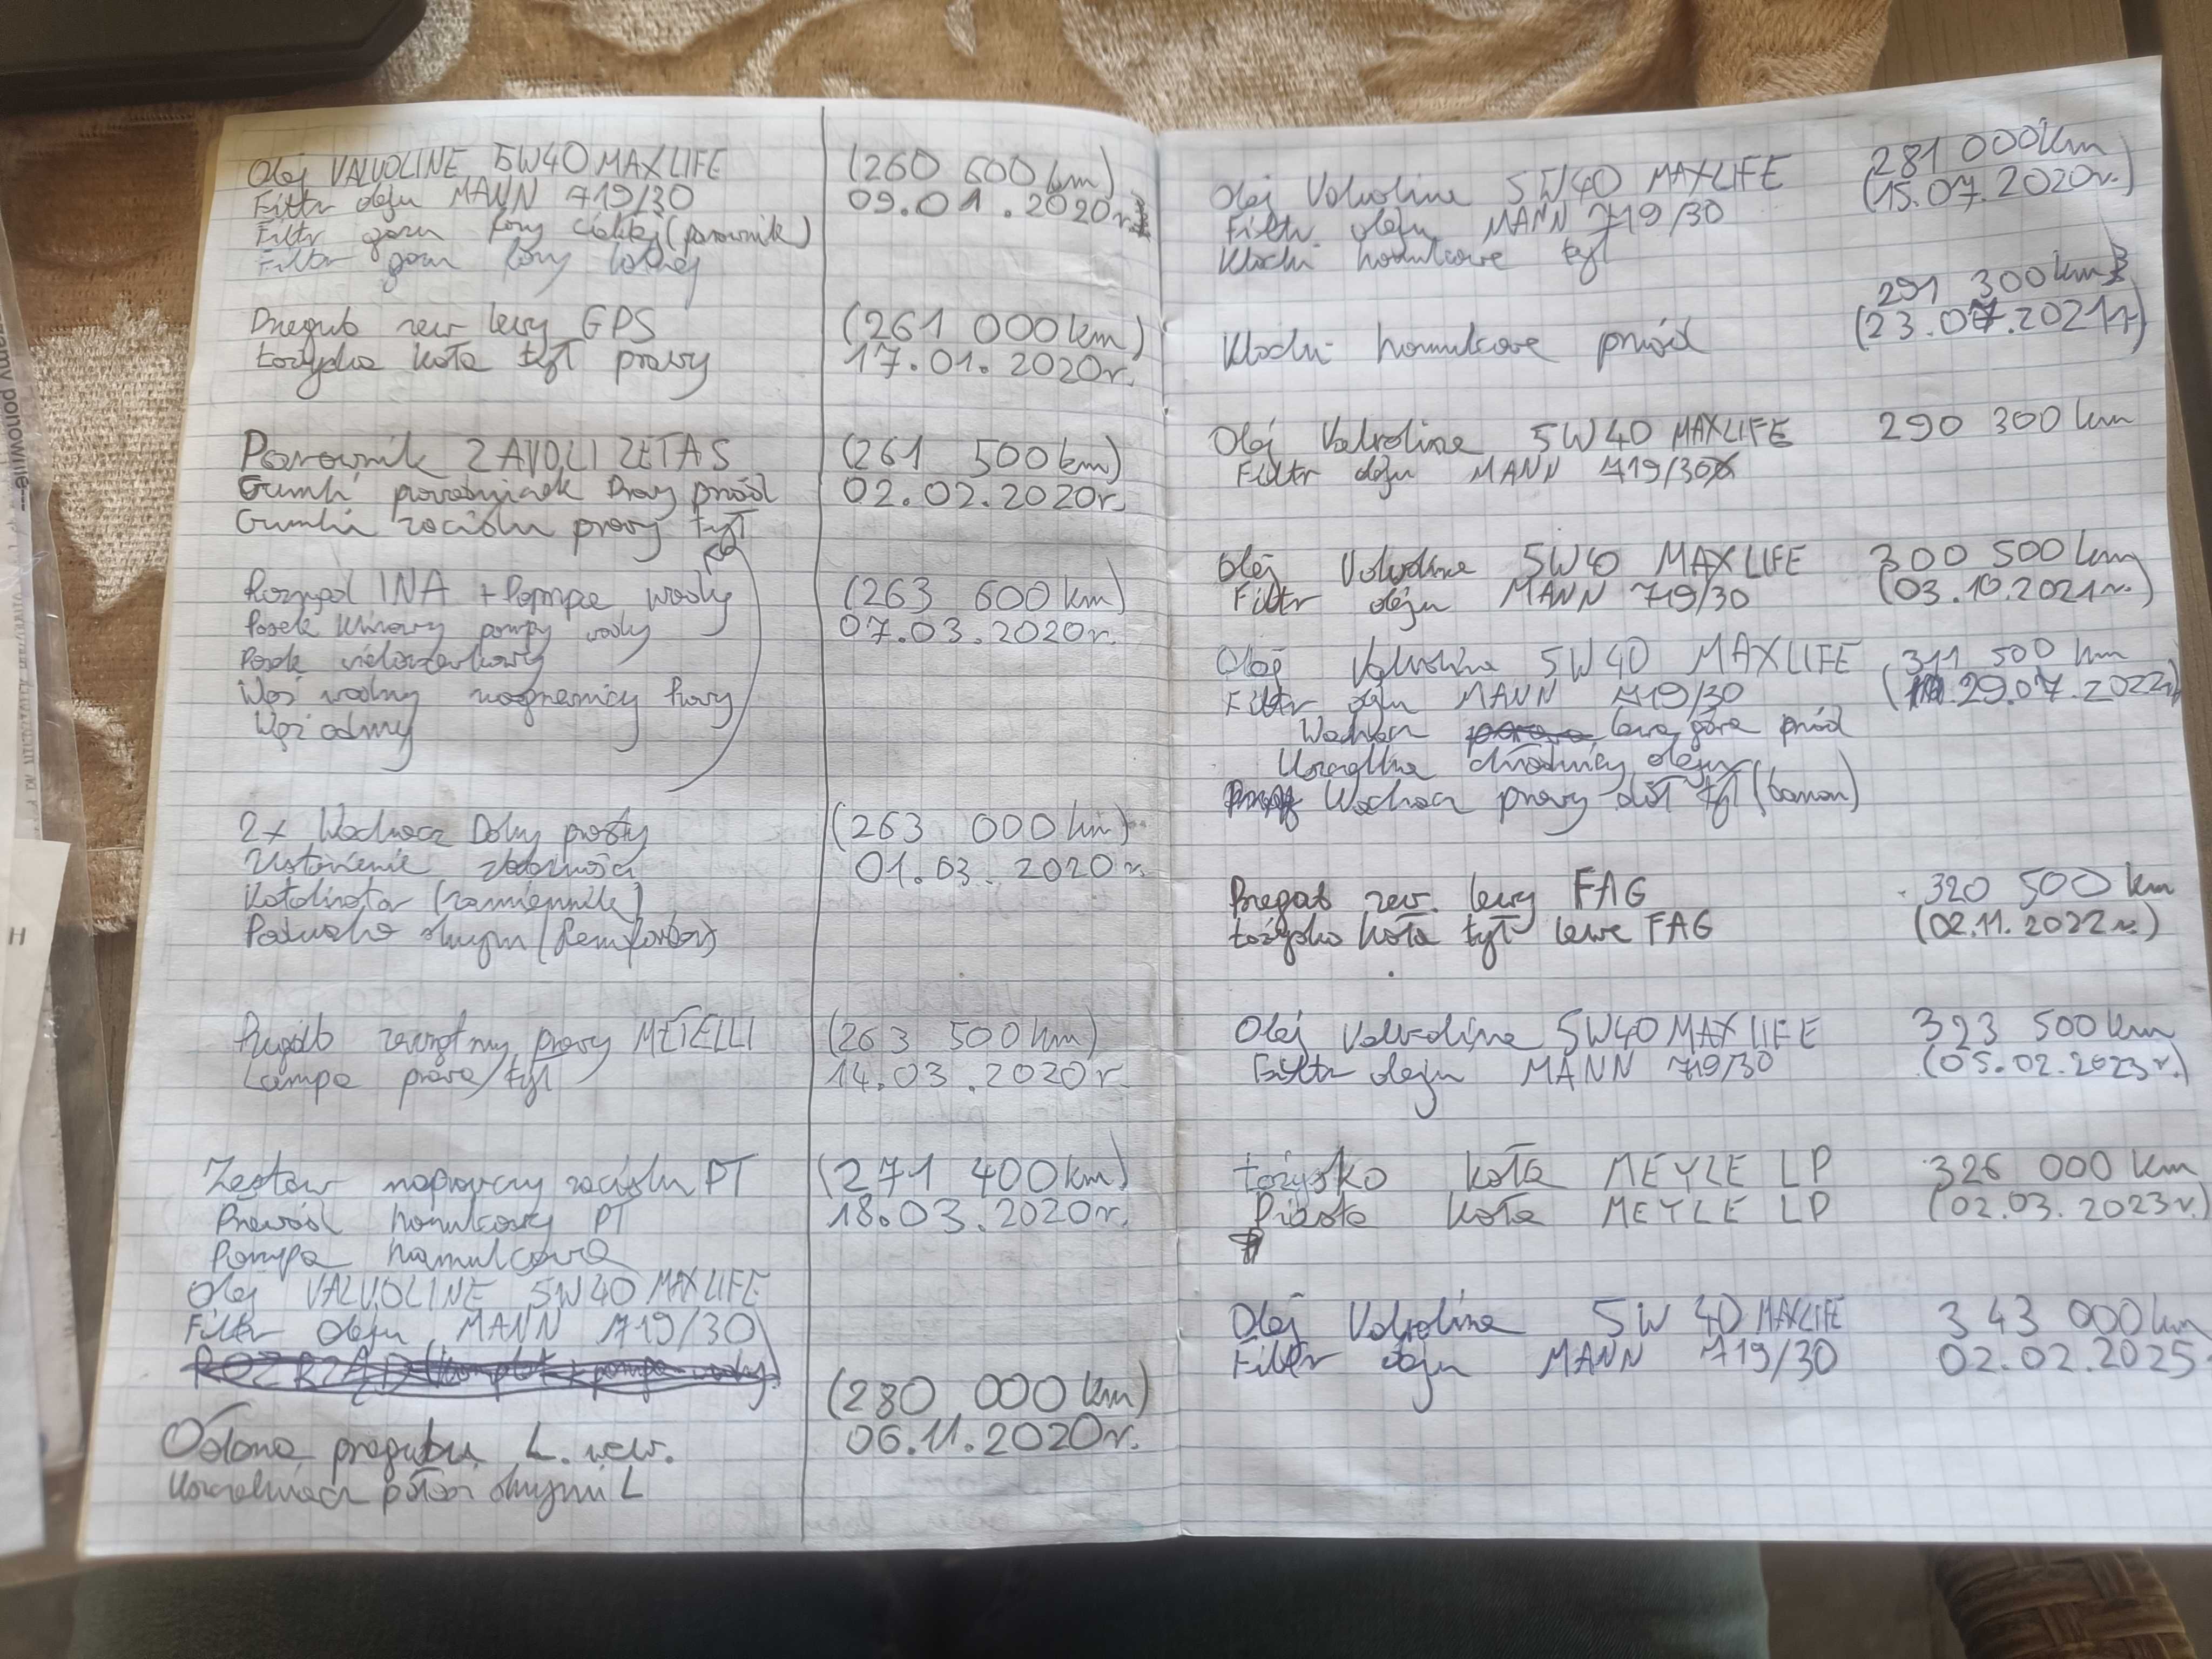 Olej VALVOLINE 5W40 MAXLIFE (260 600km)
Filtr oleju MANN 719/30 09.01.2020r.
Filtr gazu fazy ciekłej (parownik)
Filtr gazu fazy lotnej
Przegub zew lewy GPS (261 000km)
Łożysko koła tył prawy 17.01.2020r.
Parownik ZAVOLI ZETA S (261 500km)
Gumki prowadniczek Prawy przód 02.02.2020r.
Gumki zacisku prawy tył
Rozrząd INA + Pompa wody (263 600km)
Pasek klinowy pompy wody 07.03.2020r.
Pasek wielorowkowy
Wąż wodny nagrzewnicy
Wąż odmy
2x Wachacz Dolny prosty (263 000km)
Ustawienie zbieżności 01.03.2020r.
Katalizator (zamiennik)
Poduszka skrzyni
Przegub zewnętrzny prawy METELLI (263 500km)
Lampa prawa tył 14.03.2020r.
Zestaw naprawczy zacisku PT (271 400km)
Przewód hamulcowy PT 18.03.2020r.
Pompa hamulcowa
Olej VALVOLINE 5W40 MAXLIFE
Filtr oleju MANN 719/30
ROZRZĄD (komplet + pompa wody)
(280 000km)
Osłona przegubu L. wew. 06.11.2020r.
Uszczelniacz półosi skrzyni L
Olej Valvoline 5W40 MAXLIFE 281 000km
Filtr oleju MANN 719/30 (15.07.2020r.)
Klocki hamulcowe tył
291 300km
Klocki hamulcowe przód (23.07.2021r)
Olej Valvoline 5W40 MAXLIFE 290 300km
Filtr oleju MANN 719/30
Olej Valvoline 5W40 MAXLIFE 300 500km
Filtr oleju MANN 719/30 (03.10.2021r.)
Olej Valvoline 5W40 MAXLIFE 311 500km
Filtr oleju MANN 719/30 (29.07.2022r)
Wachacz prawa lewa góra przód
Uszczelka chłodnicy oleju
Wachacz prawy dół tył (banan)
Przegub zew. lewy FAG 320 500km
Łożysko koła tył lewe FAG (02.11.2022r.)
Olej Valvoline 5W40 MAXLIFE 323 500km
Filtr oleju MANN 719/30 (05.02.2023r.)
Łożysko koła MEYLE LP 326 000km
Piasta koła MEYLE LP (02.03.2023r.)
Olej Valvoline 5W40 MAXLIFE 343 000km
Filtr oleju MANN 719/30 02.02.2025